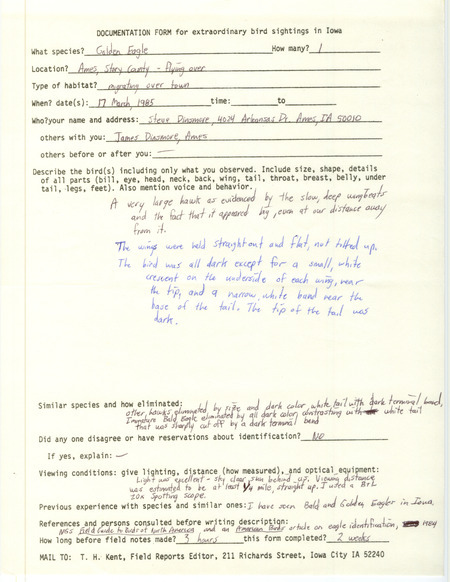 DOCUMENTATION FORM for extraordinary bird sightings in Iowa
What species? Golden Eagle How many? 1
Location? Ames, Story County - flying over
Type of habitat? migrating over town
When? date(s): 17 March, 1985 time: to
Who?your name and address: Steve Dinsmore, 4024 Arkansas Dr. Ames, IA 50010
others with you: James Dinsmore, Ames
others before or after you: —
Describe the bird(s) including only what you observed. Include size, shape, details
of all parts (bill, eye, head, neck, back, wing, tail, throat, breast, belly, under
tail, legs, feet). Also mention voice and behavior.
A very large hawk as evidenced by the slow, deep wingbeats
and the fact that it appeared big, even at our distance away
from it.
The wings were held straight out and flat, not tilted up.
The bird was all dark except for a small, white
crescent on the underside of each wing, near
the tip, and a narrow, white band near the
base of the tail. The tip of the tail was
dark.
Similar species and how eliminated:
other hawks eliminated by size and dark color, white tail with dark terminal band,
Immature Bald Eagle eliminated by all dark color contrasting with white tail
that was sharply cut off by a dark terminal band
Did any one disagree or have reservations about identification? No
If yes, explain: —
Viewing conditions: give lighting, distance (how measured), and optical equipment:
Light was excellent - sky clear, sun behind us. Viewing distance
was estimated to be at least ¼ mile, straight up. I used a B+L
20x Spotting scope.
Previous experience with species and similar ones: I have seen Bald and Golden Eagles in Iowa.
References and persons consulted before writing description:
NGS Field Guide to Birds of North America and an American Birds article on eagle identification, 1984
How long before field notes made? 3 hours this form completed? 2 weeks
MAIL TO: T. H. Kent, Field Reports Editor, 211 Richards Street, Iowa City IA 52240